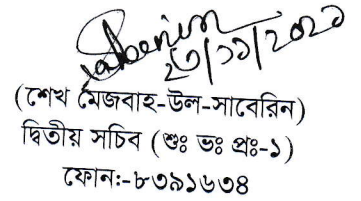 ২৩/১১/২০২১
(শেখ মেজবাহ-উল-সাবেরিন)
দ্বিতীয় সচিব (শুঃ ভঃ প্রঃ-১)
ফোন:-৮৩৯১৬৩৪